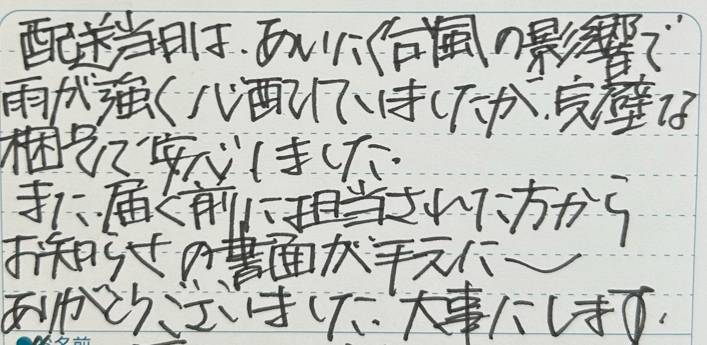 配送当日は、あいにく台風の影響で
雨が強く心配していましたが、完璧な
梱包で安心しました。
また、届く前に担当された方から
お知らせの書面が手元に〜
ありがとうございました。大事にします。
お名前